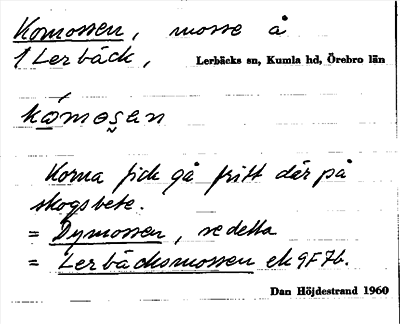 Komossen, mosse å
1 Lerbäck, Lerbäcks sn, Kumla hd, Örebro län
kómosan
Korna fick gå fritt där på
skogsbete.
= Dymossen, se detta
= Lerbäcksmossen ek 9F7b.
Dan Höjdestrand 1960